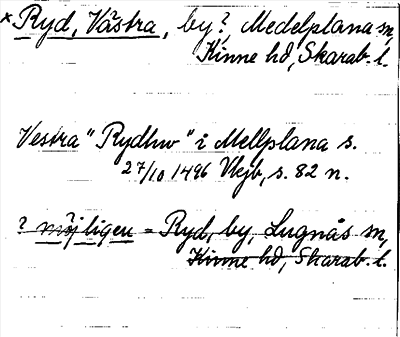 * Ryd, Västra, by?, Medelplana sn,
Kinne hd, Skarab. l.
Vestra "Rydhw" i Mellplana s.
27/10 1496 Vkjb, s. 82 n.
? möjligen = Ryd, by, Lugnås sn,
Kinne hd, Skarab. l.